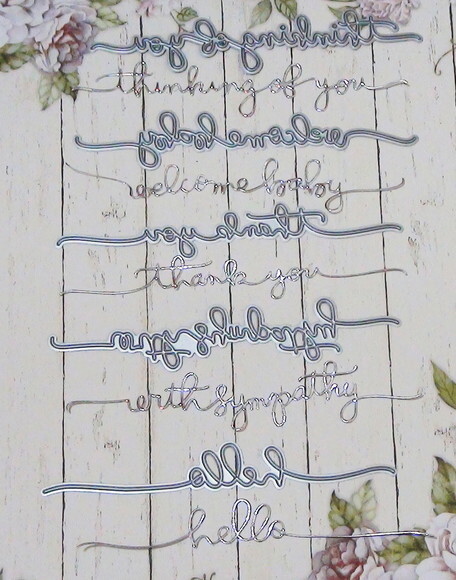 thinking of you
thinking of you
welcome baby
welcome baby
thank you
thank you
with sympathy
with sympathy
hello
hello